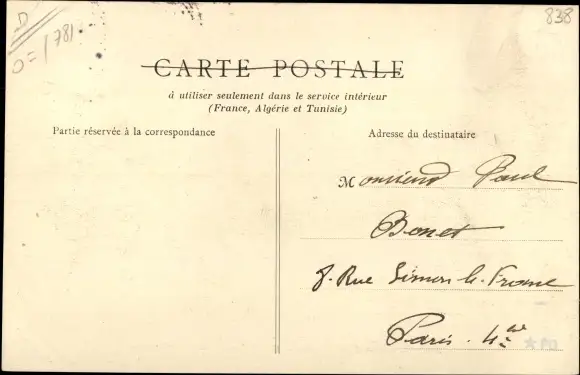 D
0=1781
838
CARTE POSTALE
à utiliser seulement dans le service intérieur
(France, Algérie et Tunisie)
Partie réservée à la correspondance
Adresse du destinataire
Monsieur Paul
Bonet
8. Rue Simon-le-Franc
Paris. 4e